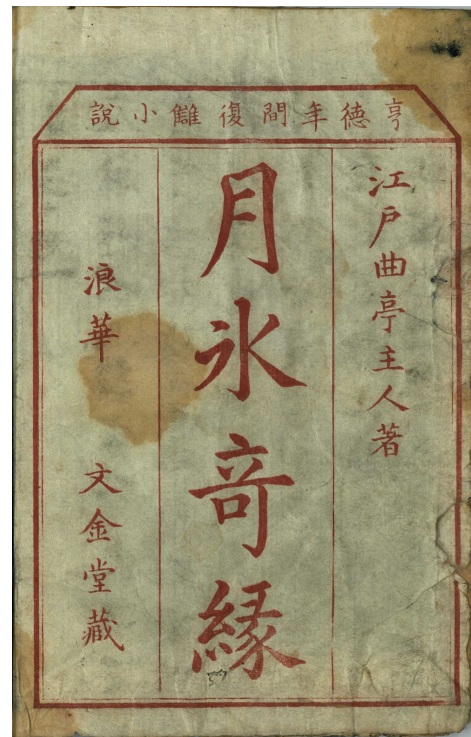 亨德年間復雠小説
江戸曲亭主人著
月氷竒縁
浪華 文金堂藏